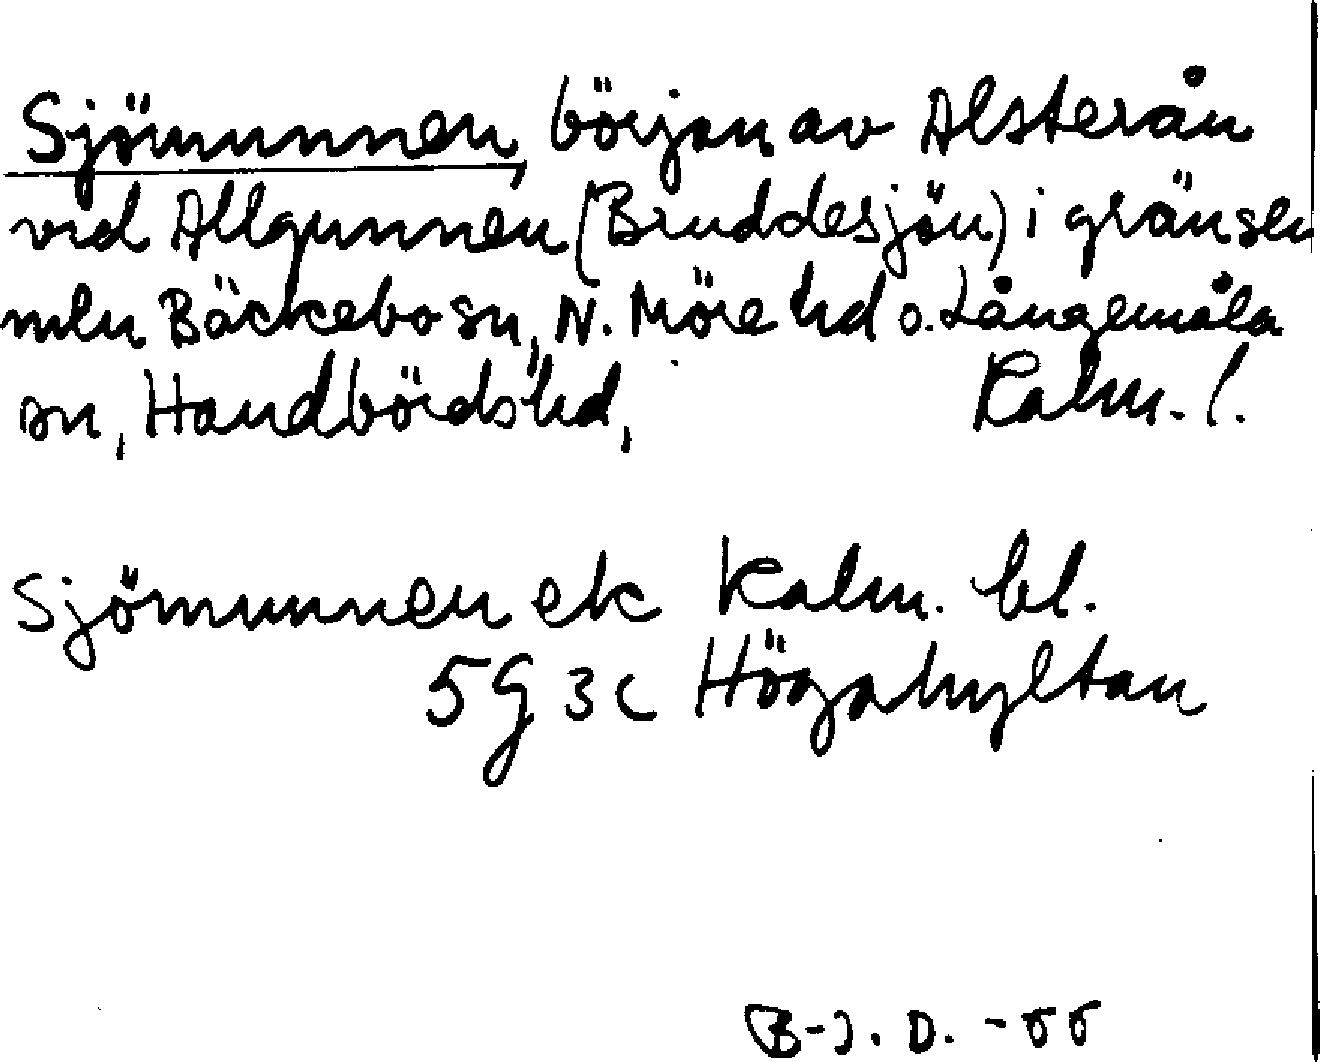 Sjömunnen, början av Alsterån
vid Allgunnen (Bruddesjön) i gränsen
mln Bäckebo sn, N. Möre hd o. Långemåla
sn, Handbörds hd, Kalm. l.
Sjömunnen ek Kalm. bl.
5G 3c Högahyltan
B-J. D. -55